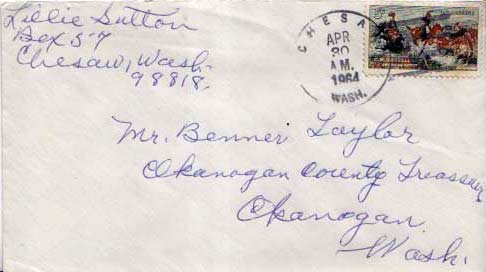 Lillie Sutton
Box 57
Chesaw, Wash.
98818.
CHESA
APR
30
A.M.
1964
WASH.
Mr. Benner Taylor
Okanogan County Treasurer
Okanogan.
Wash.